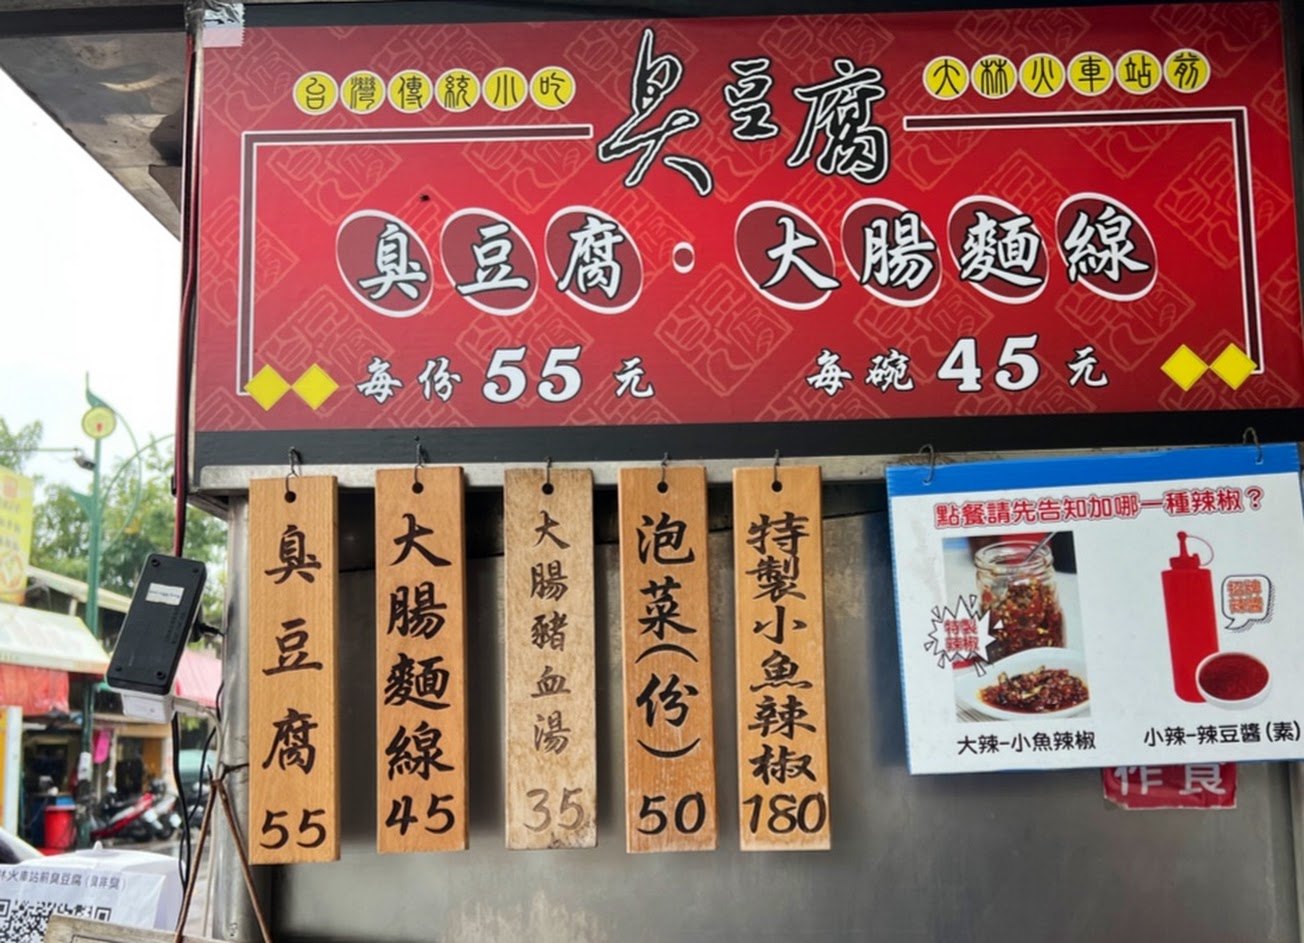 台灣傳統小吃
臭豆腐
大林火車站前
臭豆腐・大腸麵線
每份55元
每碗45元
臭豆腐55
大腸麵線45
大腸豬血湯35
泡菜(份)50
特製小魚辣椒180
點餐請先告知加哪一種辣椒？
特製
辣椒
大辣-小魚辣椒
小辣-辣豆醬(素)
作食
林火車站前臭豆腐